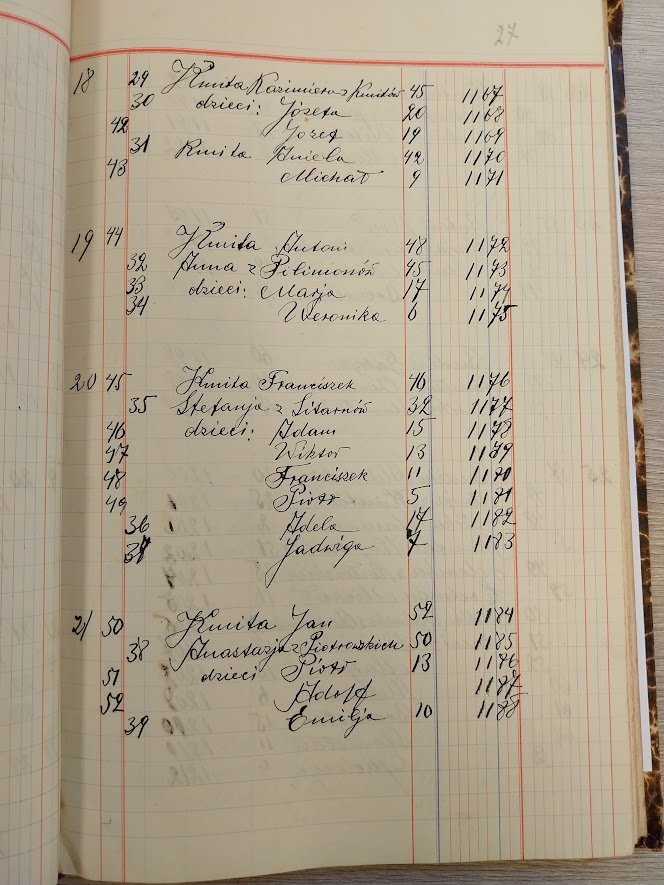 27
18 29 Kmita Kazimiera z Kmitów 45 1167
30 dzieci: Józefa 20 1168
42 Józef 19 1169
31 Kmita Aniela 42 1170
43 Michał 9 1171
19 44 Kmita Antoni 48 1172
32 Anna z Filimonów 45 1173
33 dzieci: Marja 17 1174
34 Weronika 6 1175
20 45 Kmita Franciszek 46 1176
35 Stefanja z Sitarzów 32 1177
46 dzieci: Adam 15 1178
47 Wiktor 13 1179
48 Franciszek 11 1180
49 Piotr 5 1181
36 Adela 17 1182
37 Jadwiga 7 1183
21 50 Kmita Jan 52 1184
38 Anastazja z Piotrowskich 50 1185
51 dzieci Piotr 13 1186
52 Adolf 1187
39 Emilja 10 1188